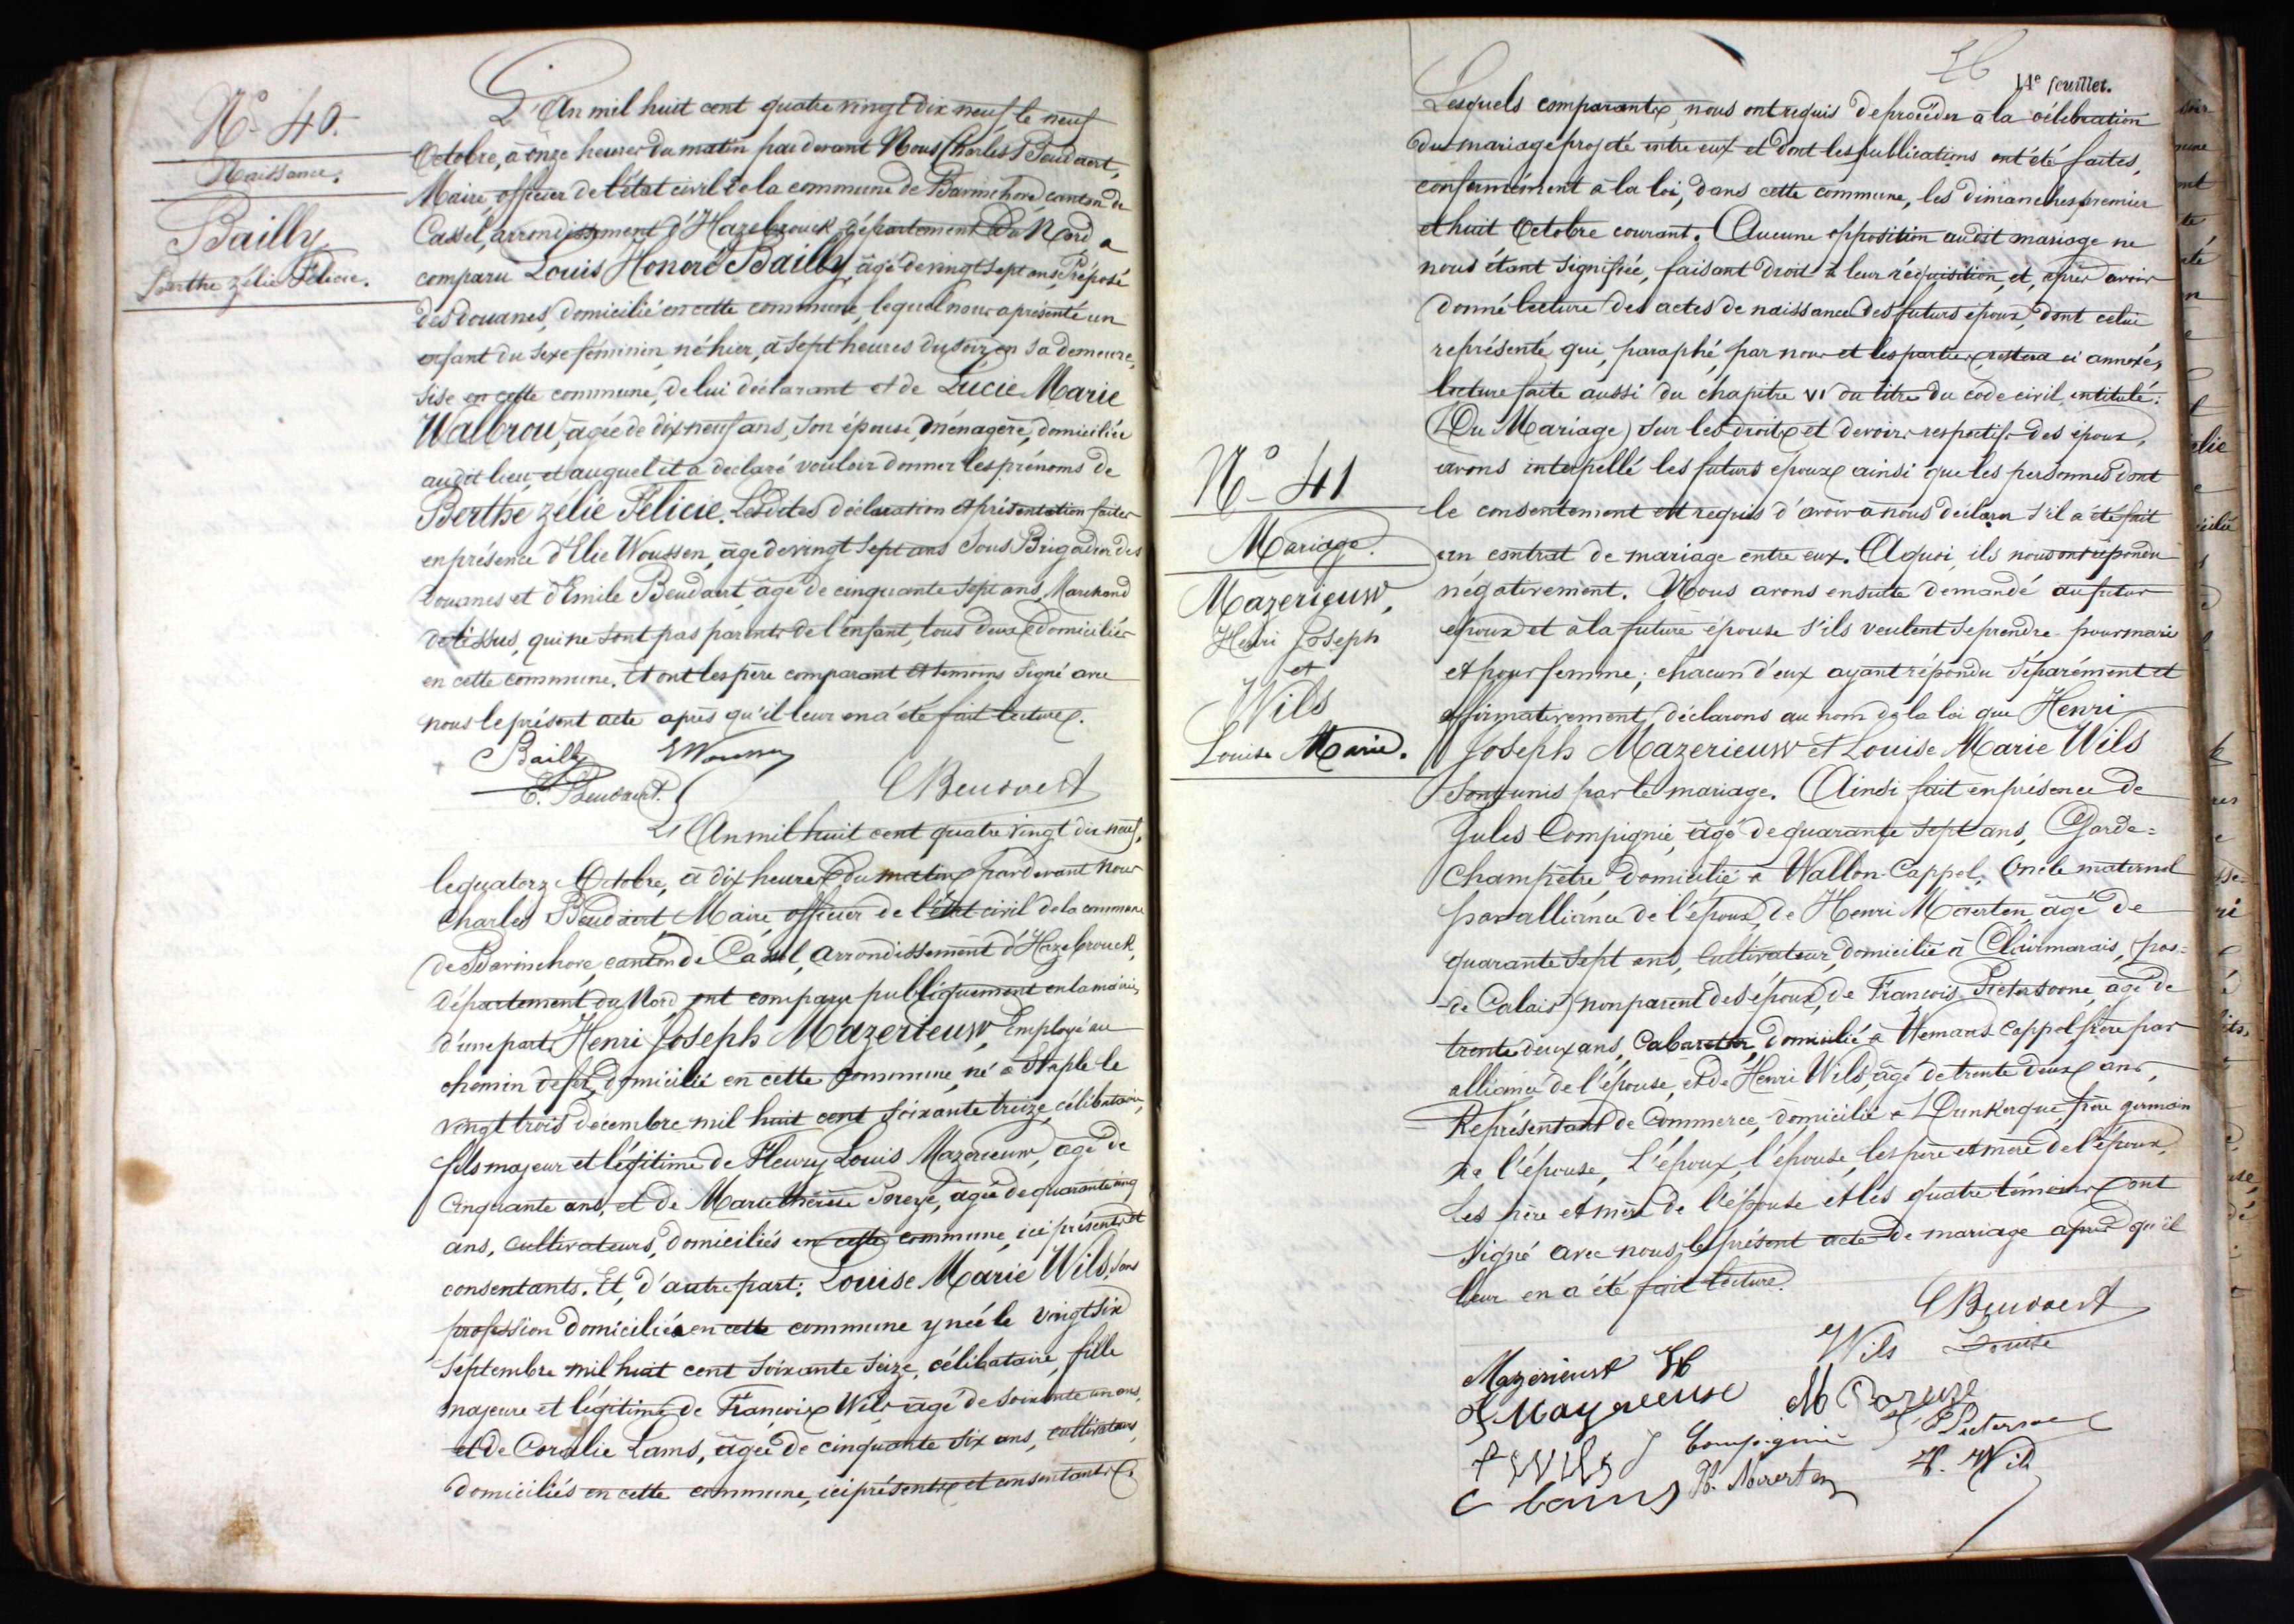 N° 40.
Naissance.
Bailly
Berthe Zélie Félicie.
L'An mil huit cent quatre vingt dix neuf le neuf
Octobre, à onze heures du matin par devant Nous Charles Beudaert,
Maire, officier de l'état civil de la commune de Bavinchove canton de
Cassel, arrondissement d'Hazebrouck, département du Nord a
comparu Louis Honoré Bailly, âgé de vingt sept ans, Préposé
des douanes, domicilié en cette commune, lequel nous a présenté un
enfant du sexe féminin, né hier, à sept heures du soir en sa demeure,
sise en cette commune, de lui déclarant et de Lucie Marie
Walbrou, âgée de dix neuf ans, son épouse, ménagère, domiciliée
audit lieu, et auquel il a déclaré vouloir donner les prénoms de
Berthe Zélie Félicie. Lesdites déclaration et présentation faites
en présence d'Elie Woussen, âgé de vingt sept ans Sous Brigadier des
douanes et d'Emile Beudaert, âgé de cinquante sept ans, Marchand
de tissus, qui ne sont pas parents de l'enfant, tous deux domiciliés
en cette commune. Et ont les père comparant et témoins signé avec
nous le présent acte après qu'il leur en a été fait lecture.
Bailly EWoussen
E. Beudaert. CBeudaert
L'An mil huit cent quatre vingt dix neuf,
le quatorze Octobre, à dix heures du matin par devant nous
Charles Beudaert Maire officier de l'état civil de la commune
de Bavinchove, canton de Cassel, arrondissement d'Hazebrouck,
département du Nord ont comparu publiquement en la mairie,
d'une part, Henri Joseph Mazerieuw, Employé au
chemin de fer, domicilié en cette commune, né à Staple le
vingt trois décembre mil huit cent soixante treize, célibataire,
fils majeur et légitime de Fleury Louis Mazerieuw, âgé de
cinquante ans, et de Marie Thérèse Pareze, âgée de quarante cinq
ans, cultivateurs, domiciliés en cette commune, ici présents et
consentants. Et, d'autre part: Louise Marie Wils, sans
profession domiciliée en cette commune y née le vingt six
Septembre mil huit cent soixante seize, célibataire, fille
majeure et légitime de François Wils âgé de soixante un ans,
et de Coralie Lams, âgée de cinquante six ans, cultivateurs,
domiciliés en cette commune, ici présents et consentants.
14e feuillet.
Lesquels comparants, nous ont requis de procéder à la célébration
du mariage projeté entre eux et dont les publications ont été faites,
conformément à la loi, dans cette commune, les dimanches premier
et huit Octobre courant. Aucune opposition audit mariage ne
nous étant signifiée, faisant droit à leur réquisition, et, après avoir
donné lecture des actes de naissance des futurs époux, dont celui
représenté qui, paraphé, par nous et les parties, restera ci annexé,
lecture faite aussi du chapitre VI du titre du code civil, intitulé:
(Du Mariage) sur les droits et devoirs respectifs des époux,
avons interpellé les futurs époux ainsi que les personnes dont
le consentement est requis d'avoir à nous déclarer s'il a été fait
un contrat de mariage entre eux. A quoi, ils nous ont répondu
négativement. Nous avons ensuite demandé au futur
époux et à la future épouse s'ils veulent se prendre pour mari
et pour femme; chacun d'eux ayant répondu séparément et
affirmativement, déclarons au nom de la loi que Henri
Joseph Mazerieuw et Louise Marie Wils
sont unis par le mariage. Ainsi fait en présence de
Jules Compignie, âgé de quarante sept ans, Garde=
Champêtre, domicilié à Wallon-Cappel, oncle maternel
par alliance de l'époux, de Henri Maerten, âgé de
quarante sept ans, Cultivateur, domicilié à Clairmarais, (pas=
=de Calais) non parent des époux, de François Pietersoone, âgé de
trente deux ans, Cabaretier, domicilié à Wemaers-Cappel, frère par
alliance de l'épouse, et de Henri Wils, âgé de trente deux ans,
Représentant de Commerce, domicilié à Dunkerque frère germain
de l'épouse, L'époux, l'épouse, les père et mère de l'époux,
les père et mère de l'épouse et les quatre témoins ont
signé avec nous le présent acte de mariage après qu'il
leur en a été fait lecture.
CBeudaert
Mazerieuw H Wils Louise
M Pareze
F Wils J Compignie F Pietersoone
C Lams H. Maerten H. Wils
N° 41
Mariage.
Mazerieuw,
Henri Joseph
et
Wils
Louise Marie.